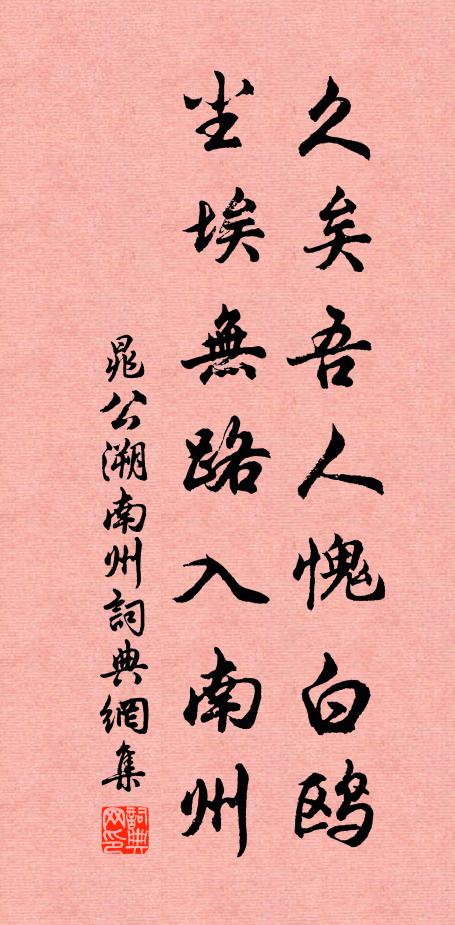 久矣吾人愧白鸥
尘埃無路入南州
晁公溯南州詞典網集
詞典网印